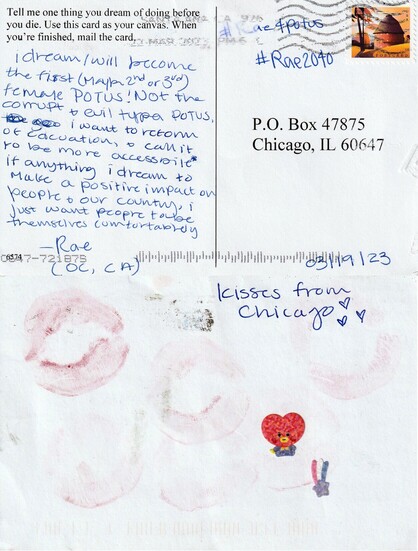 Tell me one thing you dream of doing before
you die. Use this card as your canvas. When
you're finished, mail the card.
I dream/will become
the first (Maybe 2nd or 3rd)
female POTUS! Not the
corrupt & evil type POTUS,
i want to reform
education, & call it
to be more accessible
if anything i dream to
make a positive impact on
people & our country, i
just want people to be
themselves comfortably
—Rae
(OC, CA)
6574
#Rae4potus
#Rae2040
P.O. Box 47875
Chicago, IL 60647
03/19/23
kisses from
Chicago